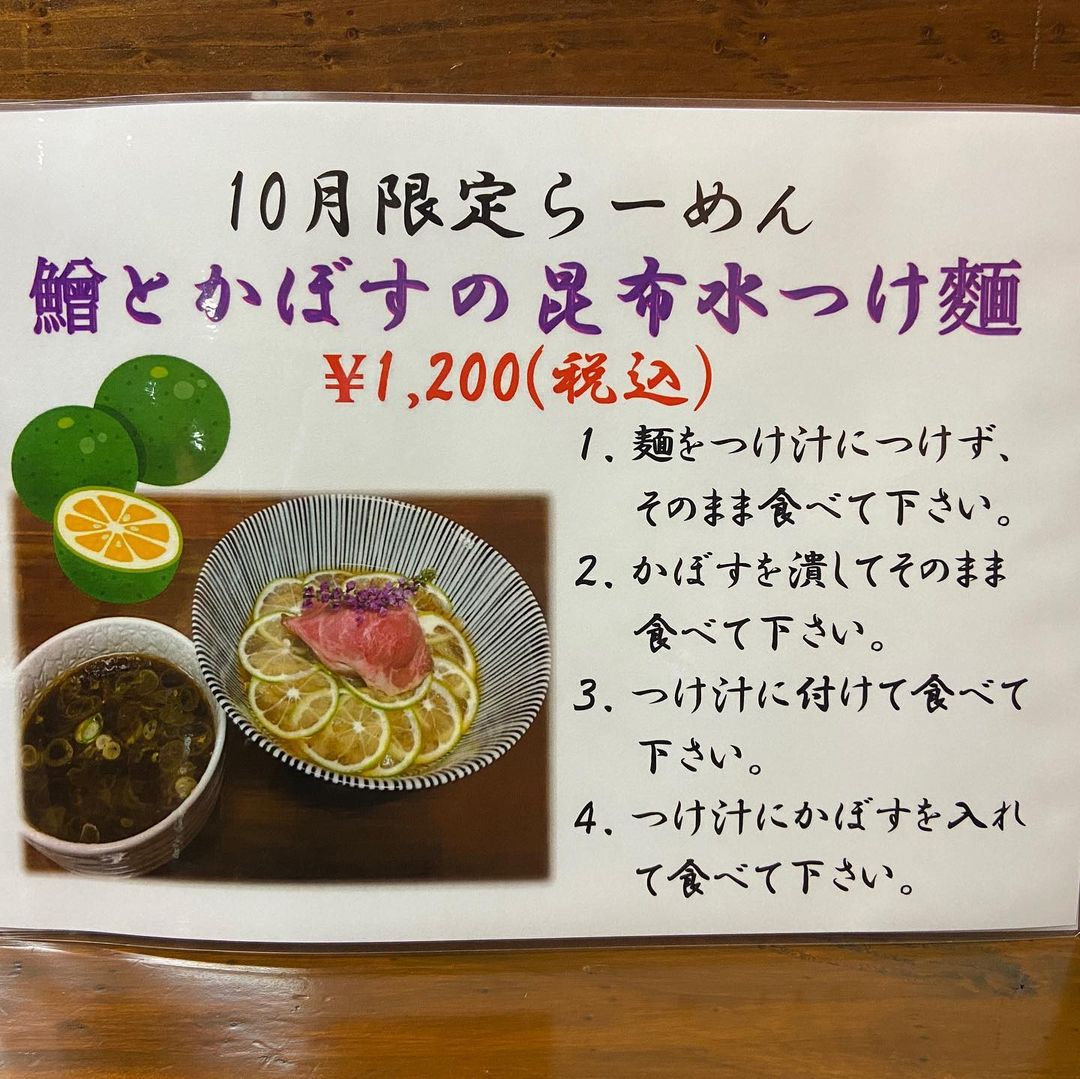 10月限定らーめん
鱠とかぼすの昆布水つけ麵
¥1,200(税込)
1. 麵をつけ汁につけず、
そのまま食べて下さい。
2. かぼすを潰してそのまま
食べて下さい。
3. つけ汁に付けて食べて
下さい。
4. つけ汁にかぼすを入れ
て食べて下さい。